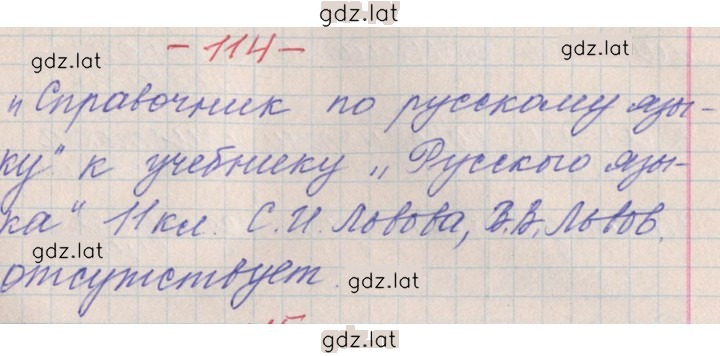 gdz.lat
- 114 -
gdz.lat
gdz.lat
„Справочник по русскому язы-
ку" к учебнику „Русского язы-
ка" 11 кл. С.И. Львова, В.В. Львов.
gdz.lat
отсутствует.
gdz.lat
gdz.lat